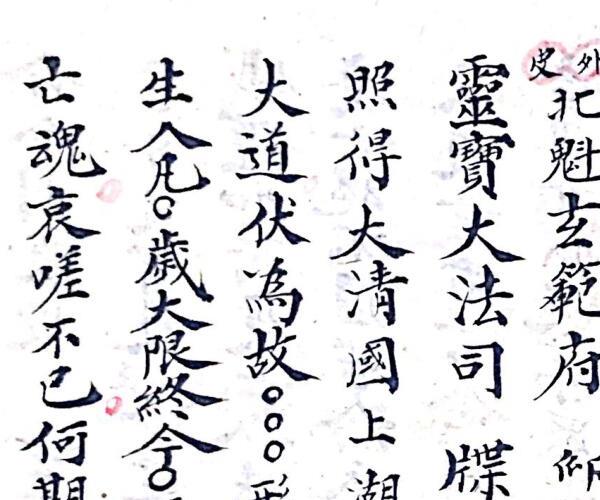 外皮
北魁玄範府
靈寶大法司 牒
照得大清國上湖
大道伏為故○○○
生人凡○歲大限終今○
亡魂哀嗟不已何期